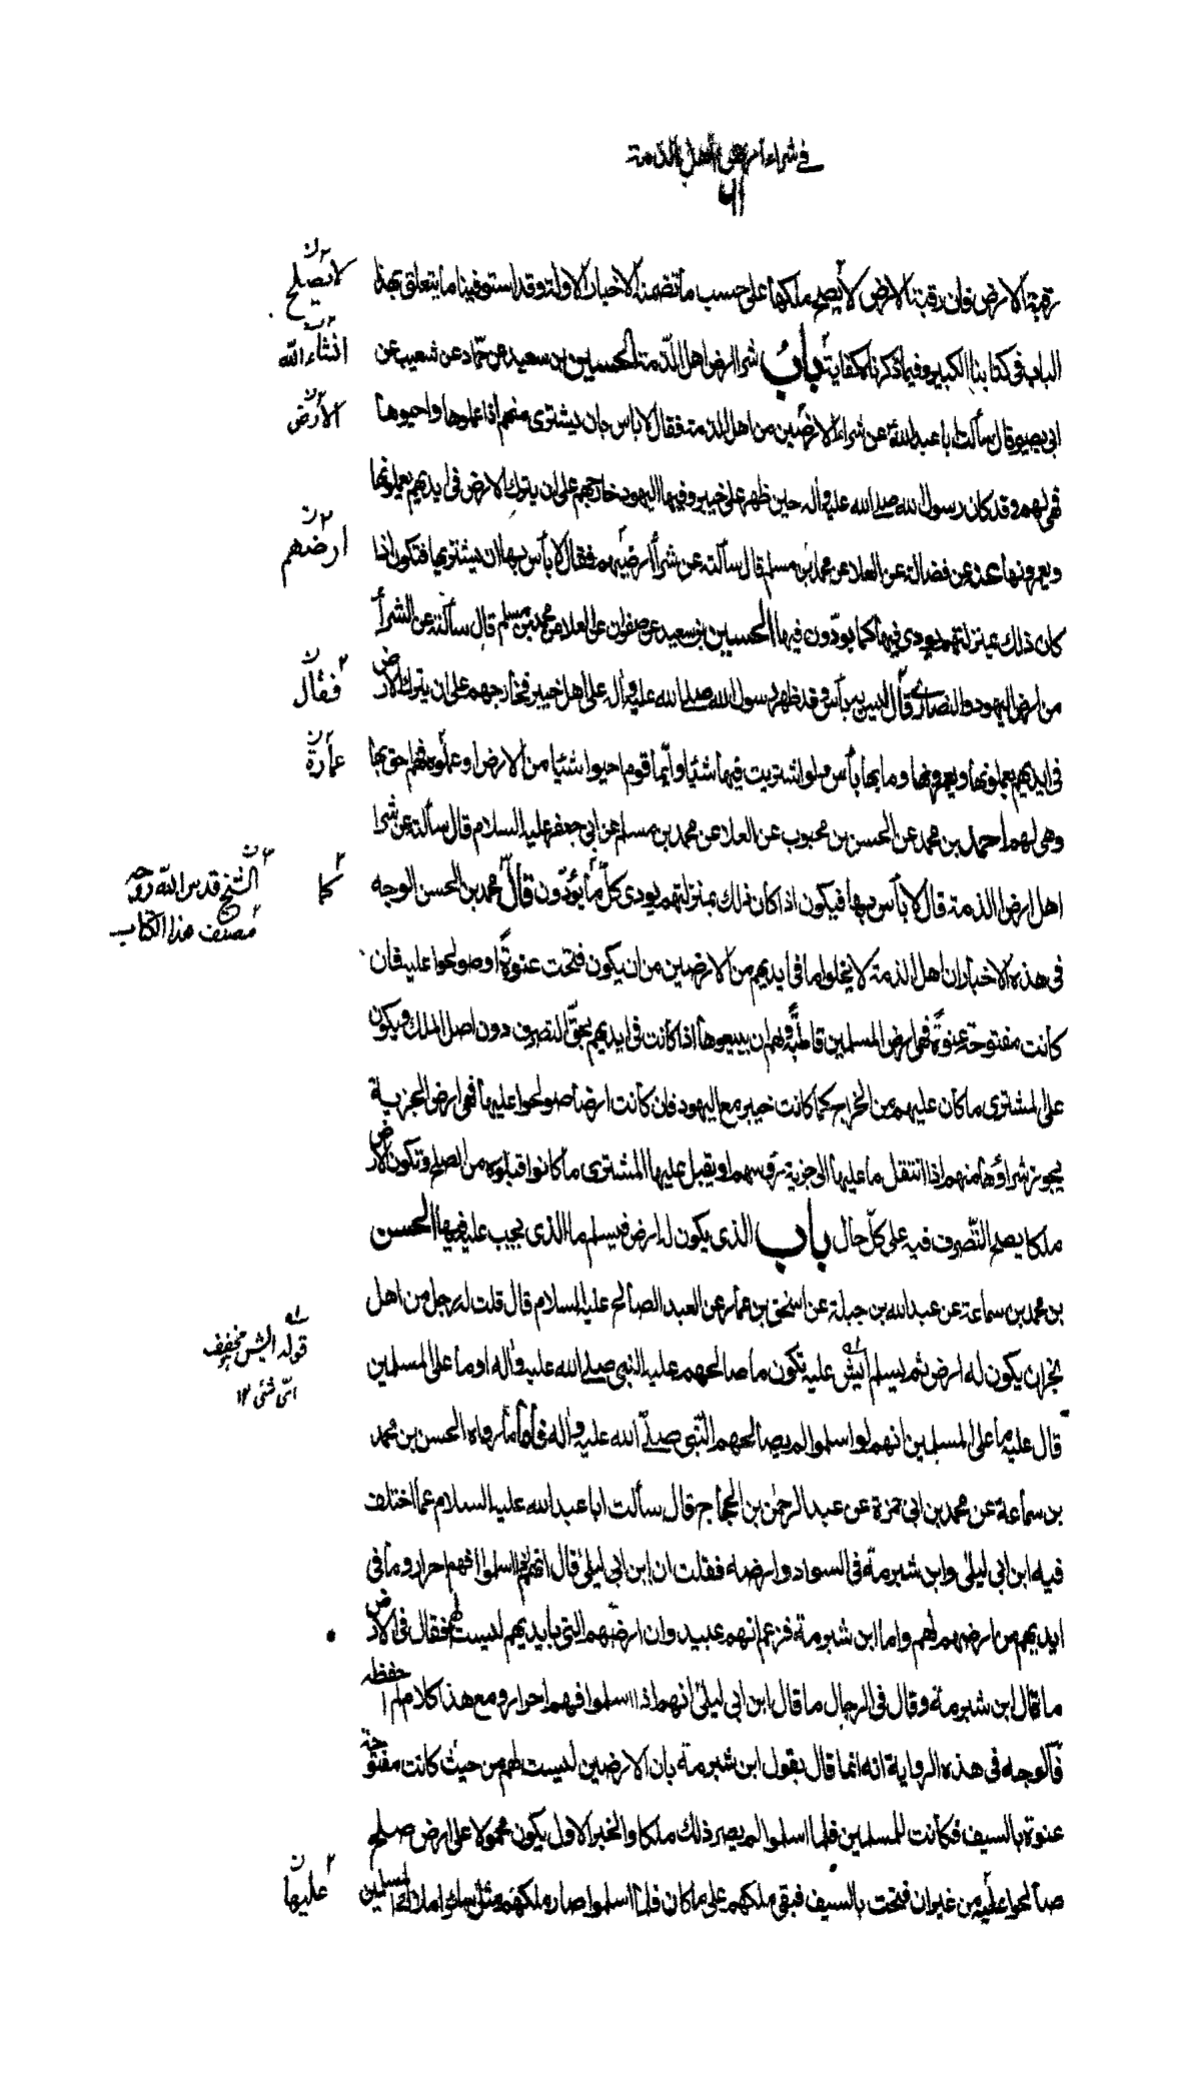 في شراء ارض اهل الذمة
٦١
رقبة الارض فان رقبة الارض لا يصح ملكها على حسب ما تضمنه الاخبار الاولة وقد استوفينا ما يتعلق بهذا
لا يصلح
الباب في كتابنا الكبير وفيما ذكرناه كفاية باب شرا ارض اهل الذمة الحسين بن سعيد عن حماد عن شعيب عن
انشاء الله
ابي بصير قال سألت ابا عبد الله عن شراء الارضين من اهل الذمة فقال لا باس بان يشترى منهم اذا عملوها واحيوها
الأرض
فهي لهم وقد كان رسول الله صلى الله عليه وآله حين ظهر على خيبر وفيها اليهود خارجهم على ان يترك الارض في ايديهم يعملونها
ويعمرونها عنه عن فضالة عن العلا عن محمد بن مسلم قال سألته عن شراء ارضيهم فقال لا بأس بها ان يشتريها فتكون اذا
ارضهم
كان ذلك بمنزلتهم يودي فيها كما يودّون فيها الحسين بن سعيد عن صفوان عن العلا عن محمد بن مسلم قال سألته عن الشرأ
من ارض اليهود والنصارى قال ليس به بأس وقد ظهر رسول الله صلى الله عليه وآله على اهل خيبر فخارجهم على ان يترك الارض
فقال
في ايديهم يعملونها ويعمرونها وما بها بأس ولو اشتريت فيها شئيا وايّما قوم احيوا شئيا من الارض او عملوه فهم احق بها
عمارة
وهي لهم احمد بن محمد عن الحسن بن محبوب عن العلا عن محمد بن مسلم عن ابي جعفر عليه السلام قال سألته عن شرا
اهل ارض الذمة قال لا بأس بها فيكون اذا كان ذلك بمنزلتهم يودي كل ما يؤدّون قال محمد بن الحسن الوجه
كما
الشيخ قدس الله روحه
مصنف هذا الكتاب
في هذه الاخبار ان اهل الذمة لا يخلوا ما في ايديهم من الارضين من ان يكون فتحت عنوةً او صولحوا عليه فان
كانت مفتوحة عنوةً فهي ارض المسلمين قاطبةً ولهم ان يبيعوها اذا كانت في ايديهم بحقّ التصرف دون اصل الملك ويكون
على المشترى ما كان عليهم من الخراج كما كانت خيبر مع اليهود فان كانت ارضا صولحوا عليها فهي ارض الجزية
يجوز شراؤها منهم اذا انتقل ما عليها الى جزية رؤسهم او يقبل عليها المشترى ما كانوا قبلوه من الصلح وتكون الارض
ملكا يصح التّصرف فيه على كلّ حال باب الذي يكون له ارض فيسلم ما الذي يجب عليه فيها الحسن
بن محمد بن سماعة عن عبد الله بن جبلة عن اسحق بن عمار عن العبد الصالح عليه السلام قال قلت له رجل من اهل
نجران يكون له ارض ثم يسلم ايش عليه تكون ما صالحهم عليه النبي صلى الله عليه وآله او ما على المسلمين
قوله اليش مخفف
ايّ شئ ١٢
قال عليه ما على المسلمين انهم لو اسلموا لم يصالحهم النّبي صلّى الله عليه وآله فأما ما رواه الحسن بن محمد
بن سماعة عن محمد بن ابي حمزة عن عبد الرحمن بن الحجاج قال سألت ابا عبد الله عليه السلام عما اختلف
فيه ابن ابي ليلى وابن شبرمة في السواد وارضه فقلت ان ابن ابي ليلى قال انهم اذا اسلموا انهم احرار وما في
ايديهم من ارضهم لهم واما ابن شبرمة فزعم انهم عبيد وان ارضهم التي بايديهم ليست لهم فقال في الارض
ما قال ابن شبرمة وقال في الرجال ما قال ابن ابي ليلى انهم اذا اسلموا فهم احرار ومع هذا كلام لم احفظه
فالوجه في هذه الرواية انه انما قال بقول ابن شبرمة بان الارضين ليست لهم من حيث كانت مفتوحة
عنوة بالسيف فكانت للمسلمين فلما اسلموا لم يصر ذلك ملكا والخبر الاول يكون محمولا على ارض صلح
صالحوا عليه من غير ان فتحت بالسيف فبقي ملكهم على ما كان فلما اسلموا صار ملكهم مثل ساير املاك المسلمين
عليها